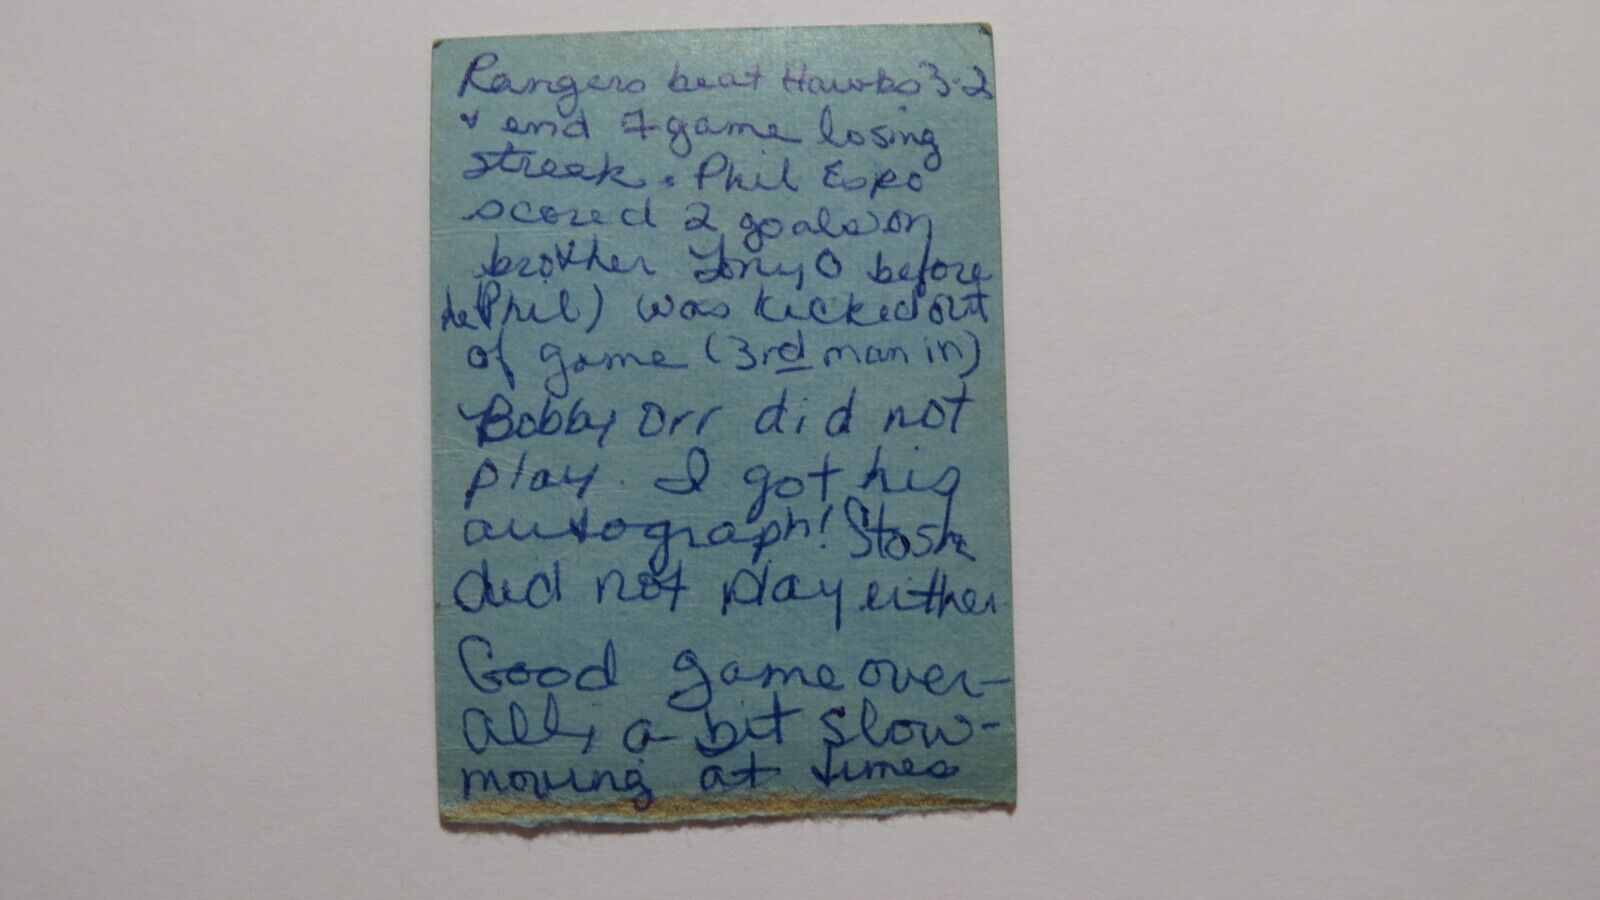 Rangers beat Hawks 3-2
& end 7-game losing
streak. Phil Espo
scored 2 goals on
brother Tony O before
he (Phil) was kicked out
of game (3rd man in)
Bobby Orr did not
play. I got his
autograph! Stosh
did not play either
Good game over-
all, a bit slow-
moving at times